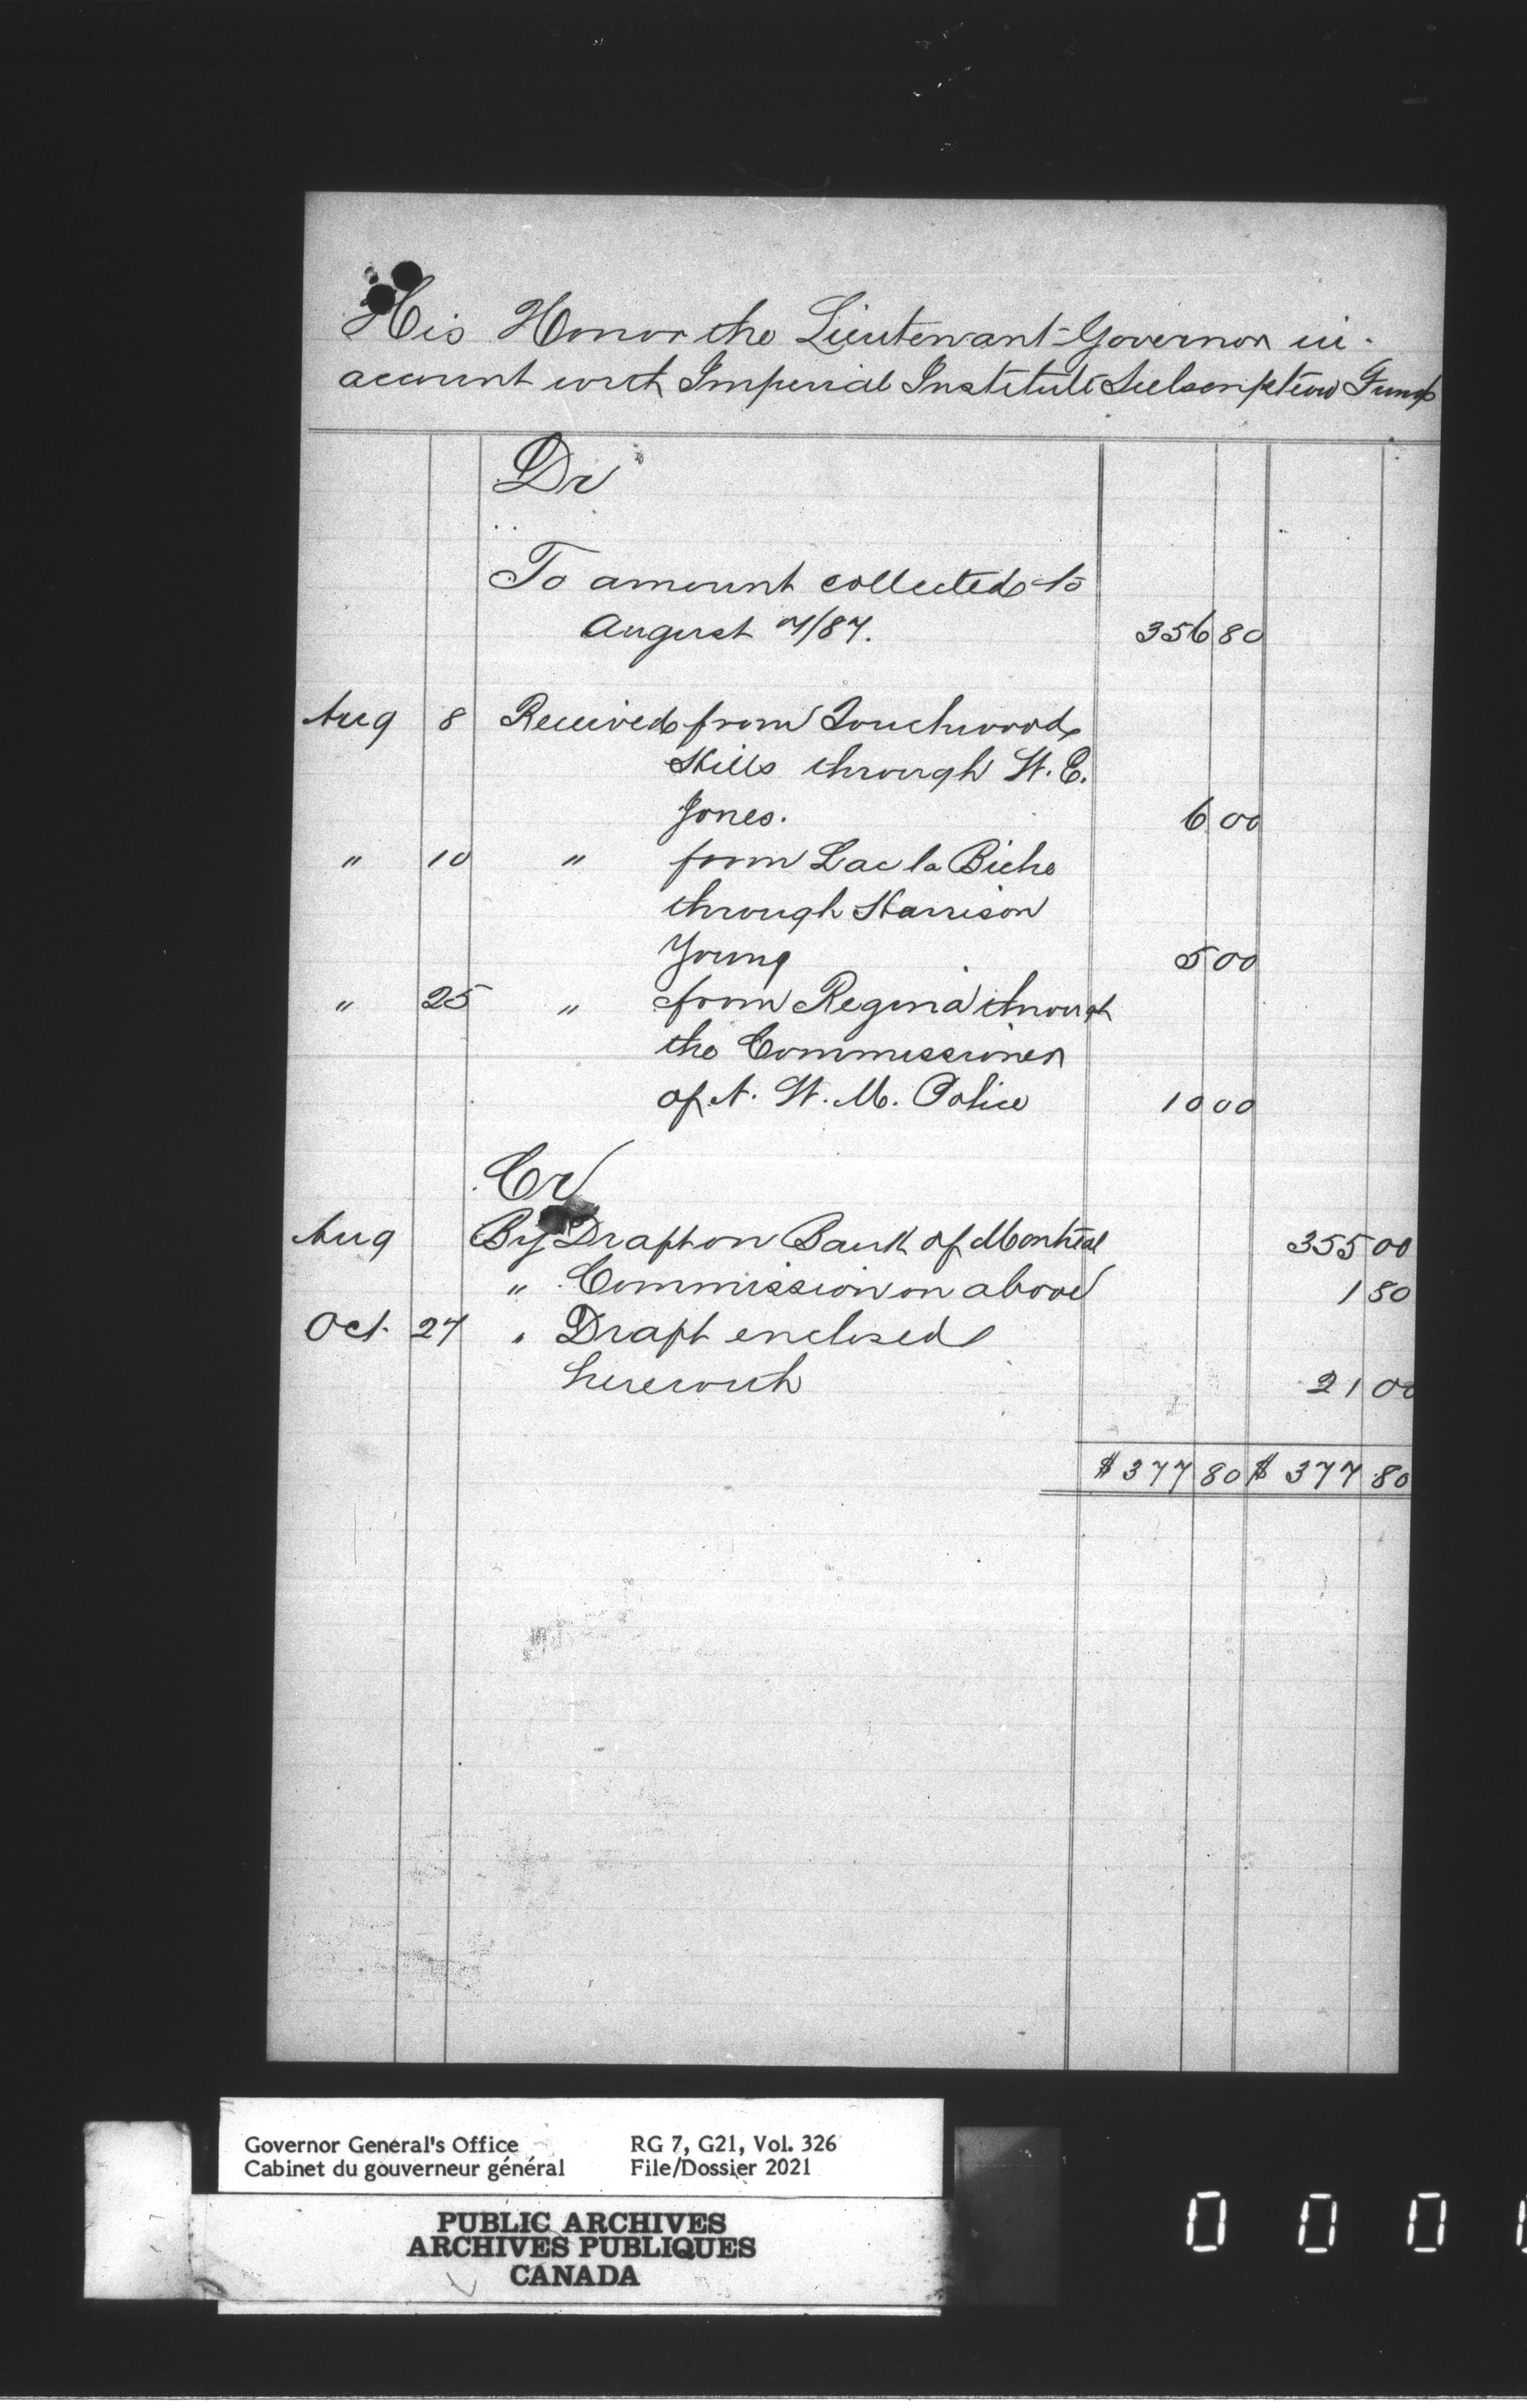 His Honor the Lieutenant-Governor in
account with Imperial Institute Subscription Fund
Dr
To amount collected to
August 7/87. 356 80
Aug 8 Received from Touchwood
Hills through W. E.
Jones. 6 00
" 10 " from Lac la Biche
through Harrison
Young 5 00
" 25 " from Regina through
the Commissioner
of N. W. M. Police 10 00
Cr
Aug By Draft on Bank of Montreal 355 00
" Commission on above 1 80
Oct. 27 " Draft enclosed
herewith 21 00
$ 377 80 $ 377 80
Governor General's Office RG 7, G21, Vol. 326
Cabinet du gouverneur général File/Dossier 2021
PUBLIC ARCHIVES
ARCHIVES PUBLIQUES
CANADA
0 0 0